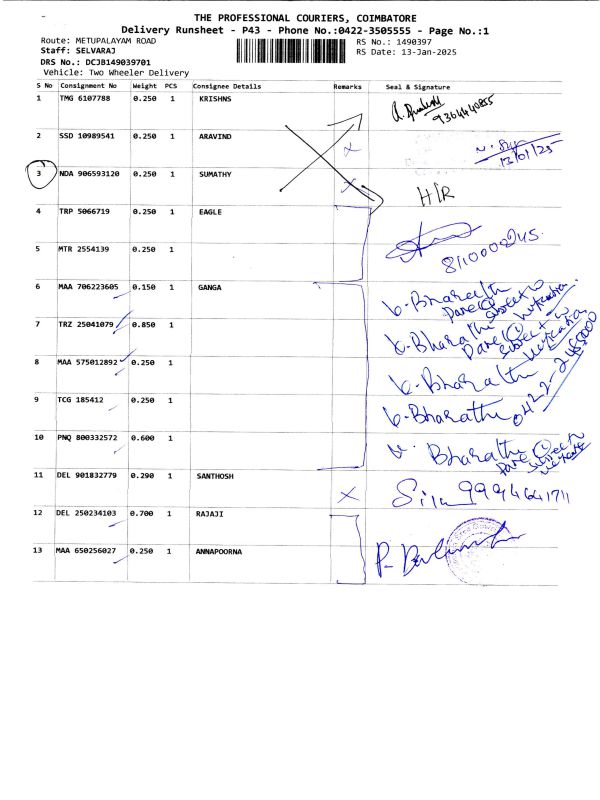 THE PROFESSIONAL COURIERS, COIMBATORE
Delivery Runsheet - P43 - Phone No.:0422-3505555 - Page No.:1
Route: METUPALAYAM ROAD RS No.: 1490397
Staff: SELVARAJ RS Date: 13-Jan-2025
DRS No.: DCJB149039701
Vehicle: Two Wheeler Delivery
S No Consignment No Weight PCS Consignee Details Remarks Seal & Signature
1 TMG 6107788 0.250 1 KRISHNS
9364440855
2 SSD 10989541 0.250 1 ARAVIND X
13/01/25
3 NDA 906593120 0.250 1 SUMATHY X H/R
4 TRP 5066719 0.250 1 EAGLE
5 MTR 2554139 0.250 1 8110000245.
6 MAA 706223605 0.150 1 GANGA b-Bharath
7 TRZ 25041079 0.850 1 b-Bharath
8 MAA 575012892 0.250 1 b-Bharath
9 TCG 185412 0.250 1 b-Bharath 0422-2450000
10 PNQ 800332572 0.600 1 Bharath
11 DEL 901832779 0.290 1 SANTHOSH X 9994641711
12 DEL 250234103 0.700 1 RAJAJI
13 MAA 650256027 0.250 1 ANNAPOORNA